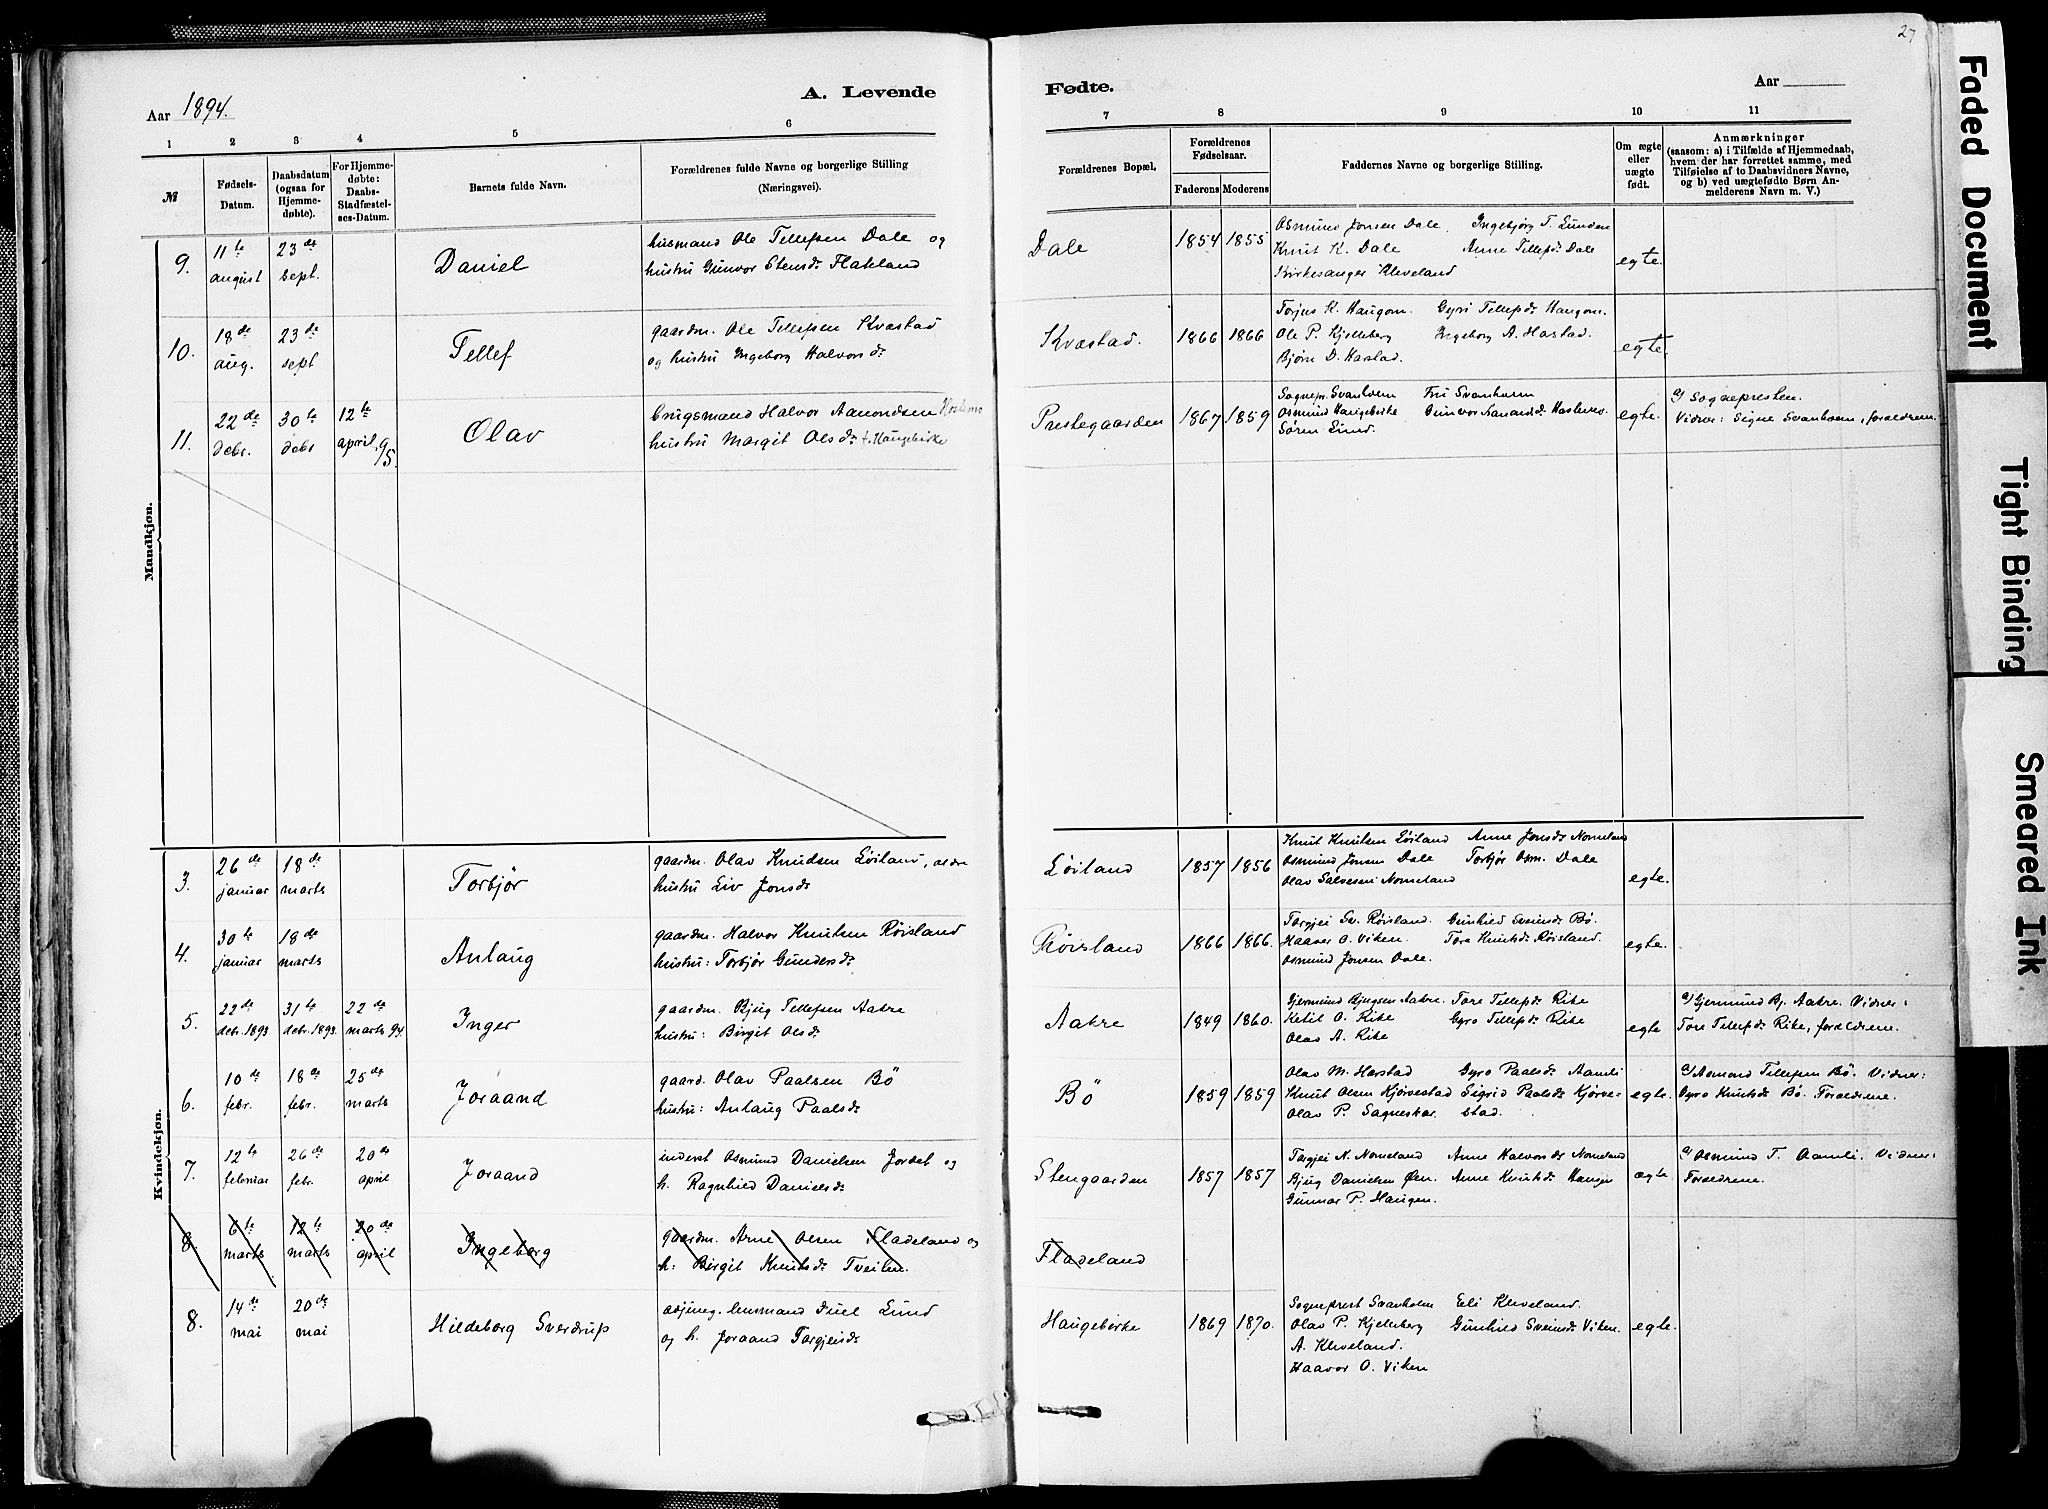 27
Aar 1894.
A. Levende
Fødte.
Aar
1 2 3 4 5 6 7 8 9 10 11
№
Fødsels-Datum.
Daabsdatum (ogsaa for Hjemmedøbte).
For Hjemmedøbte: Daabs-Stadfæstelses-Datum.
Barnets fulde Navn.
Forældrenes fulde Navne og borgerlige Stilling (Næringsvei).
Forældrenes Bopæl.
Forældrenes Fødselsaar.
Faderens Moderens
Faddernes Navne og borgerlige Stilling.
Om ægte eller uægte født.
Anmærkninger
(saasom: a) i Tilfælde af Hjemmedaab, hvem der har forrettet samme, med Tilføielse af to Daabsvidners Navne, og b) ved uægtefødte Børn Anmelderens Navn m. V.)
Mandkjøn.
9. 11te august 23de sept. Daniel
husmand Ole Tellefsen Dale og
hustru Gunvor Stensdr. Flakland
Dale 1854 1855
Osmund Jonsen Dale. Ingebjørg T. Lunden
Knut K. Dale Anne Tellefsdr Dale
Kirkesanger Kleveland
egte.
10. 18de aug. 23de sept Tellef
gaardm. Ole Tellefsen Kvæstad
og hustru Ingeborg Halvorsdr
Kvæstad. 1866 1866
Torjus K. Haugom. Gyri Tellefsdr Haugom.
Ole P. Kjelleberg Ingeborg A. Harstad.
Bjørn D. Harstad.
egte.
11. 22de debr. 30te debr 12te april 95. Olav
brugsmand Halvor Aamondsen
hustru Margit Olsdr f. Haugebirke
Prestegaarden 1867 1859
Sognepr. Svanholm Fru Svanholm
Osmund Haugebirke Gunvor
Søren Lund.
egte.
a/ Sognepresten.
Vidner: Signe Svanholm, foreldrene.
Kvindekjøn.
3. 26de januar 18de marts Torbjør
gaardm. Olav Knudsen Løiland, eldre
hustru Liv Jonsdr
Løiland 1857 1856
Knut Knutsen Løiland Anne Jonsdr Nomeland
Osmund Jonsen Dale Torbjør Osm. Dale
Olav Salvesen Nomeland
egte.
4. 30te januar 18de marts Anlaug
gaardm. Halvor Knutsen Røisland
hustru: Torbjør Gundersdr
Røisland 1866 1866.
Torgjei Sv. Røisland. Gunhild Sveinsdr Bø.
Haavor O. Viken. Tore Knutsdr Røisland.
Osmund Jonsen Dale.
egte.
5. 22de debr. 1893 31te debr. 1893 22de marts 94 Inger
gaardm. Bjug Tellefsen Aakre
hustru: Birgit Olsdr
Aakre 1849 1860.
Gjermund Bjugsen Aakre. Tore Tellefsdr Rike
Ketil O. Rike Gyro Tellefsdr Rike
Olav A. Rike
egte
a/ Gjermund Bj. Aakre. Vidner:
Tore Tellefsdr Rike, foreldrene.
6. 10de febr. 18de febr. 25de marts Joraand
gaard. Olav Paalsen Bø
hustru: Anlaug Paalsdr
Bø 1859 1859
Olav M. Harstad Gyro Paalsdr Aamli
Knut Olsen Kjørvestad Sigrid Paalsdr Kjørve-
Olav P. Sagneskar stad.
egte.
a/ Asmond Tellefsen Bø. Vidner:
Gyro Knutsdr Bø. Foreldrene.
7. 12te februar 26de febr. 20de april Joraand
inderst Osmund Danielsen Jordet og
h. Ragnhild Danielsdr
Stengaarden 1857 1857
Torgjei N. Nomeland Anne Halvorsdr Nomeland
Bjug Danielsen Øen. Anne Knutsdr Haugen
Gunnar P. Haugen.
ægte
a/ Osmund T. Aamli. Vidner:
Foreldrene.
8. 6te marts 12te marts 20de april Ingeborg
gaardm. Arne Olsen Fladeland og
h: Birgit Knutsdr Tveiten.
Fladeland
8. 14de mai 20de mai Hildeborg Sverdrup
lensmand Juel Lund
og h. Joraand Torgjeisdr
Haugebirke 1869 1870.
Sogneprest Svanholm Eli Kleveland.
Olav P. Kjelleberg Gunhild Sveinsdr Viken.
A. Kleveland.
Haavor O. Viken
egte.
Faded Document
Tight Binding
Smeared Ink